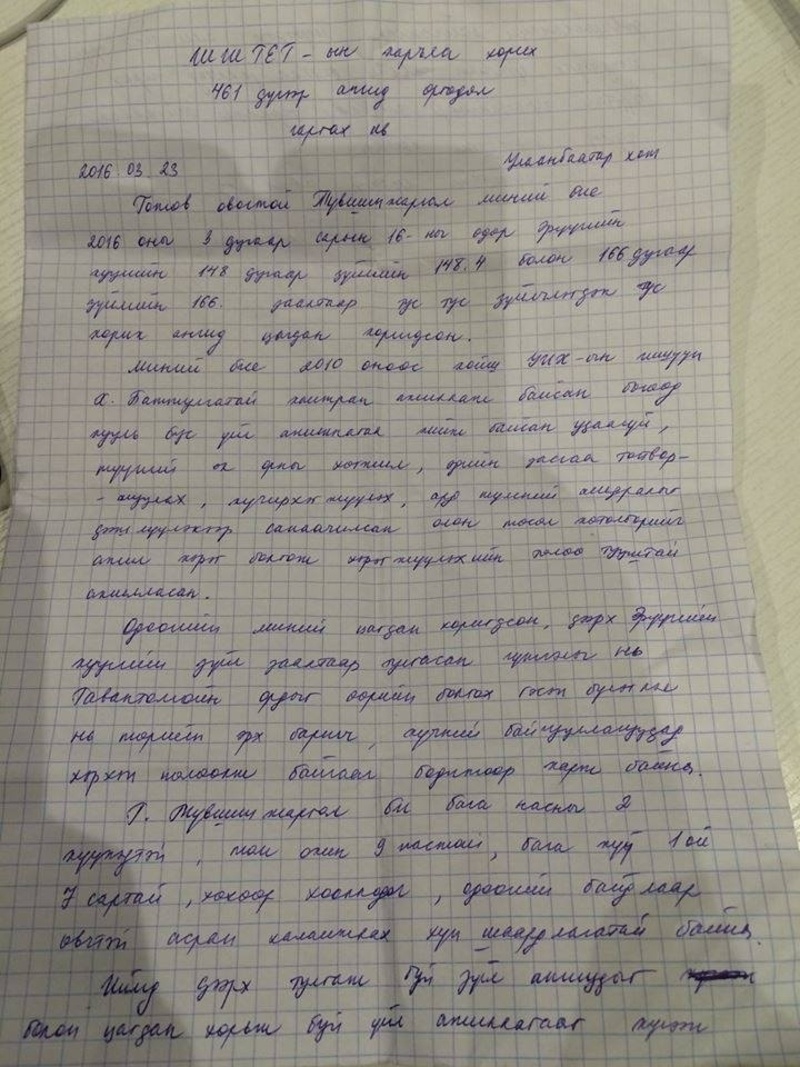 ШШГЕГ-ын харъяа хорих
461 дүгээр ангид өргөдөл
гаргах нь
2016.03.23 Улаанбаатар хот
Готов овогтой Түвшинжаргал миний бие
2016 оны 3 дугаар сарын 16-ны өдөр Эрүүгийн
хуулийн 148 дугаар зүйлийн 148.4 болон 166 дугаар
зүйлийн 166. заалтаар тус тус зүйлчлэгдэж тус
хорих ангид цагдан хоригдсон.
Миний бие 2010 оноос хойш УИХ-ын гишүүн
Х. Баттулгатай хамтран ажиллаж байсан бөгөөд
хууль бус үйл ажиллагаа хийж байсан удаагүй,
түүний эх орны хөгжил, эдийн засгаа тогтвор-
-жуулах, хүчирхэгжүүлэх, ард түмний амьдралыг
дээшлүүлэхээр санаачилсан олон төсөл хөтөлбөрийг
ажил хэрэг болгож хэрэгжүүлэхийн төлөө түүнтэй
ажилласан.
Одоогийн миний цагдан хоригдсон, дээрх Эрүүгийн
хуулийн зүйл заалтаар тулгасан гүтгэлэг нь
Тавантолгойн ордыг өөрийн болгох гэсэн бүлэглэл
нь төрийн эрх баригч, хүчний байгууллагуудад
хэрхэн нөлөөлж байгааг бодитоор харж байна.
Г. Түвшинжаргал би бага насны 2
хүүхэдтэй, том охин 9 настай, бага хүү 1 ой
7 сартай, хөхөөр хооллодог, одоогийн байдлаар
өвчтэй асран халамжлах хүн шаардлагатай байна.
Иймд дээрх тулгаж буй зүйл ангиудыг
болон цагдан хорьж буй үйл ажиллагааг хүчээр